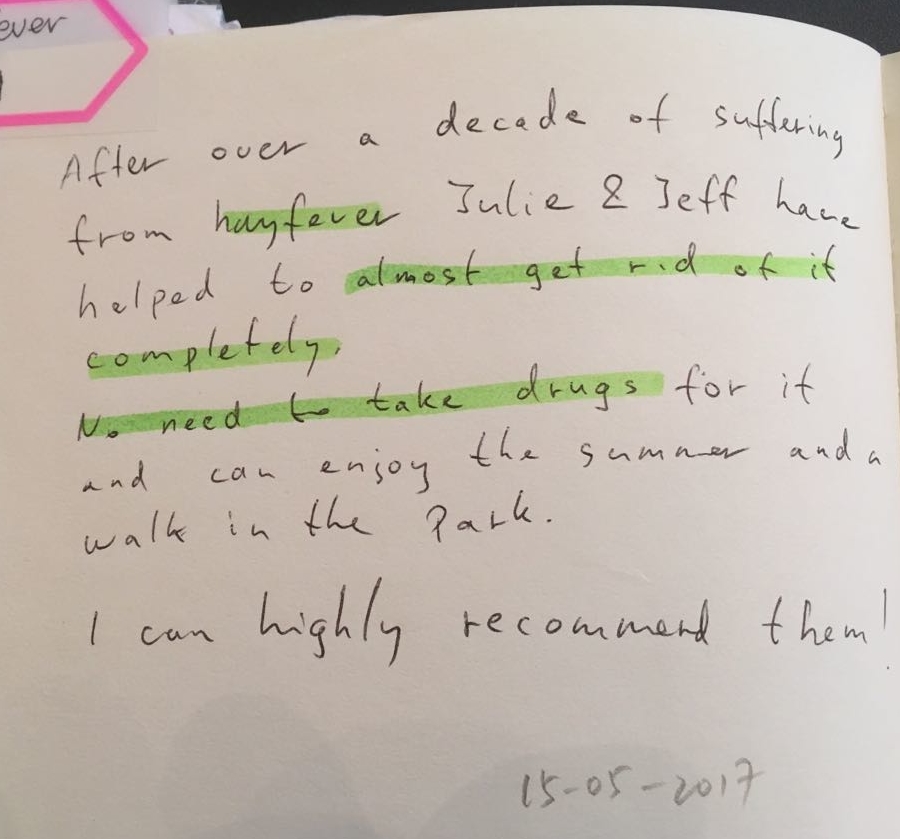 ever
After over a decade of suffering
from hayfever Julie & Jeff have
helped to almost get rid of it
completely.
No need to take drugs for it
and can enjoy the summer and a
walk in the Park.
I can highly recommend them!
15-05-2017